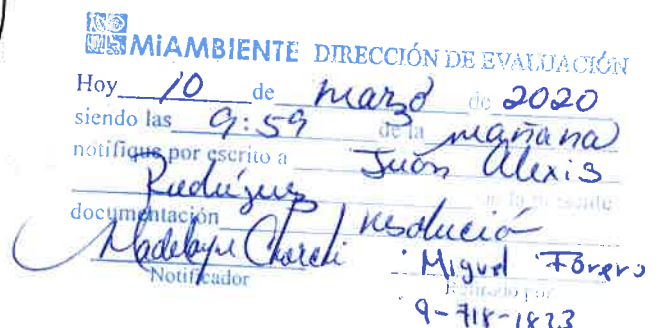 MiAMBIENTE DIRECCIÓN DE EVALUACIÓN
Hoy 10 de marzo de 2020
siendo las 9:59 de la mañana
notifique por escrito a Juan Alexis
Rudríguez de la presente
documentación resolució
Notificador Miguel Forero
Retirado por
9-718-1823